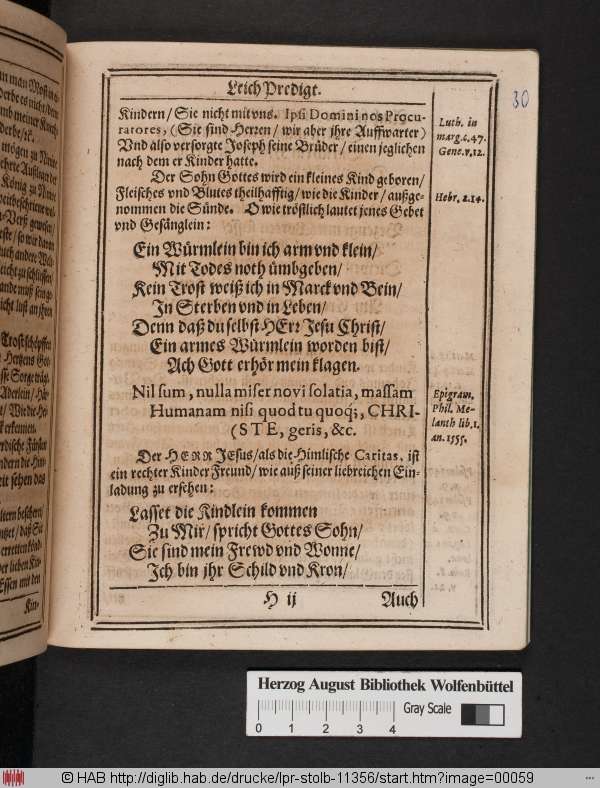 LeichPredigt.
30
Kindern/ Sie nicht mit vns. Ipsi Domini nos Procu-
ratores, (Sie sind Herren/ wir aber jhre Auffwarter)
Vnd also versorgte Joseph seine Brüder/ einen jeglichen
nach dem er Kinder hatte.
Luth. in
marg. c. 47.
Gene. v. 12.
Der Sohn Gottes wird ein kleines Kind geboren/
Fleisches vnd Blutes theilhafftig/ wie die Kinder/ außge-
nommen die Sünde. O wie tröstlich lautet jenes Gebet
vnd Gesänglein:
Hebr. 2. 14.
Ein Würmlein bin ich arm vnd klein/
Mit Todes noth ümbgeben/
Kein Trost weiß ich in Marck vnd Bein/
In Sterben vnd in Leben/
Denn daß du selbst HErr Jesu Christ/
Ein armes Würmlein worden bist/
Ach Gott erhör mein klagen.
Nil sum, nulla miser novi solatia, massam
Humanam nisi quod tu quoq;, CHRI-
(STE, geris, &c.
Epigram.
Phil. Me-
lanth lib. 1.
an. 1555.
Der HERR JEsus/ als die Himlische Caritas, ist
ein rechter Kinder Freund/ wie auß seiner liebreichen Ein-
ladung zu ersehen:
Lasset die Kindlein kommen
Zu Mir/ spricht Gottes Sohn/
Sie sind mein Frewd vnd Wonne/
Ich bin jhr Schild vnd Kron/
H ij Auch
Herzog August Bibliothek Wolfenbüttel
0 1 2 3 4 Gray Scale
© HAB http://diglib.hab.de/drucke/lpr-stolb-11356/start.htm?image=00059